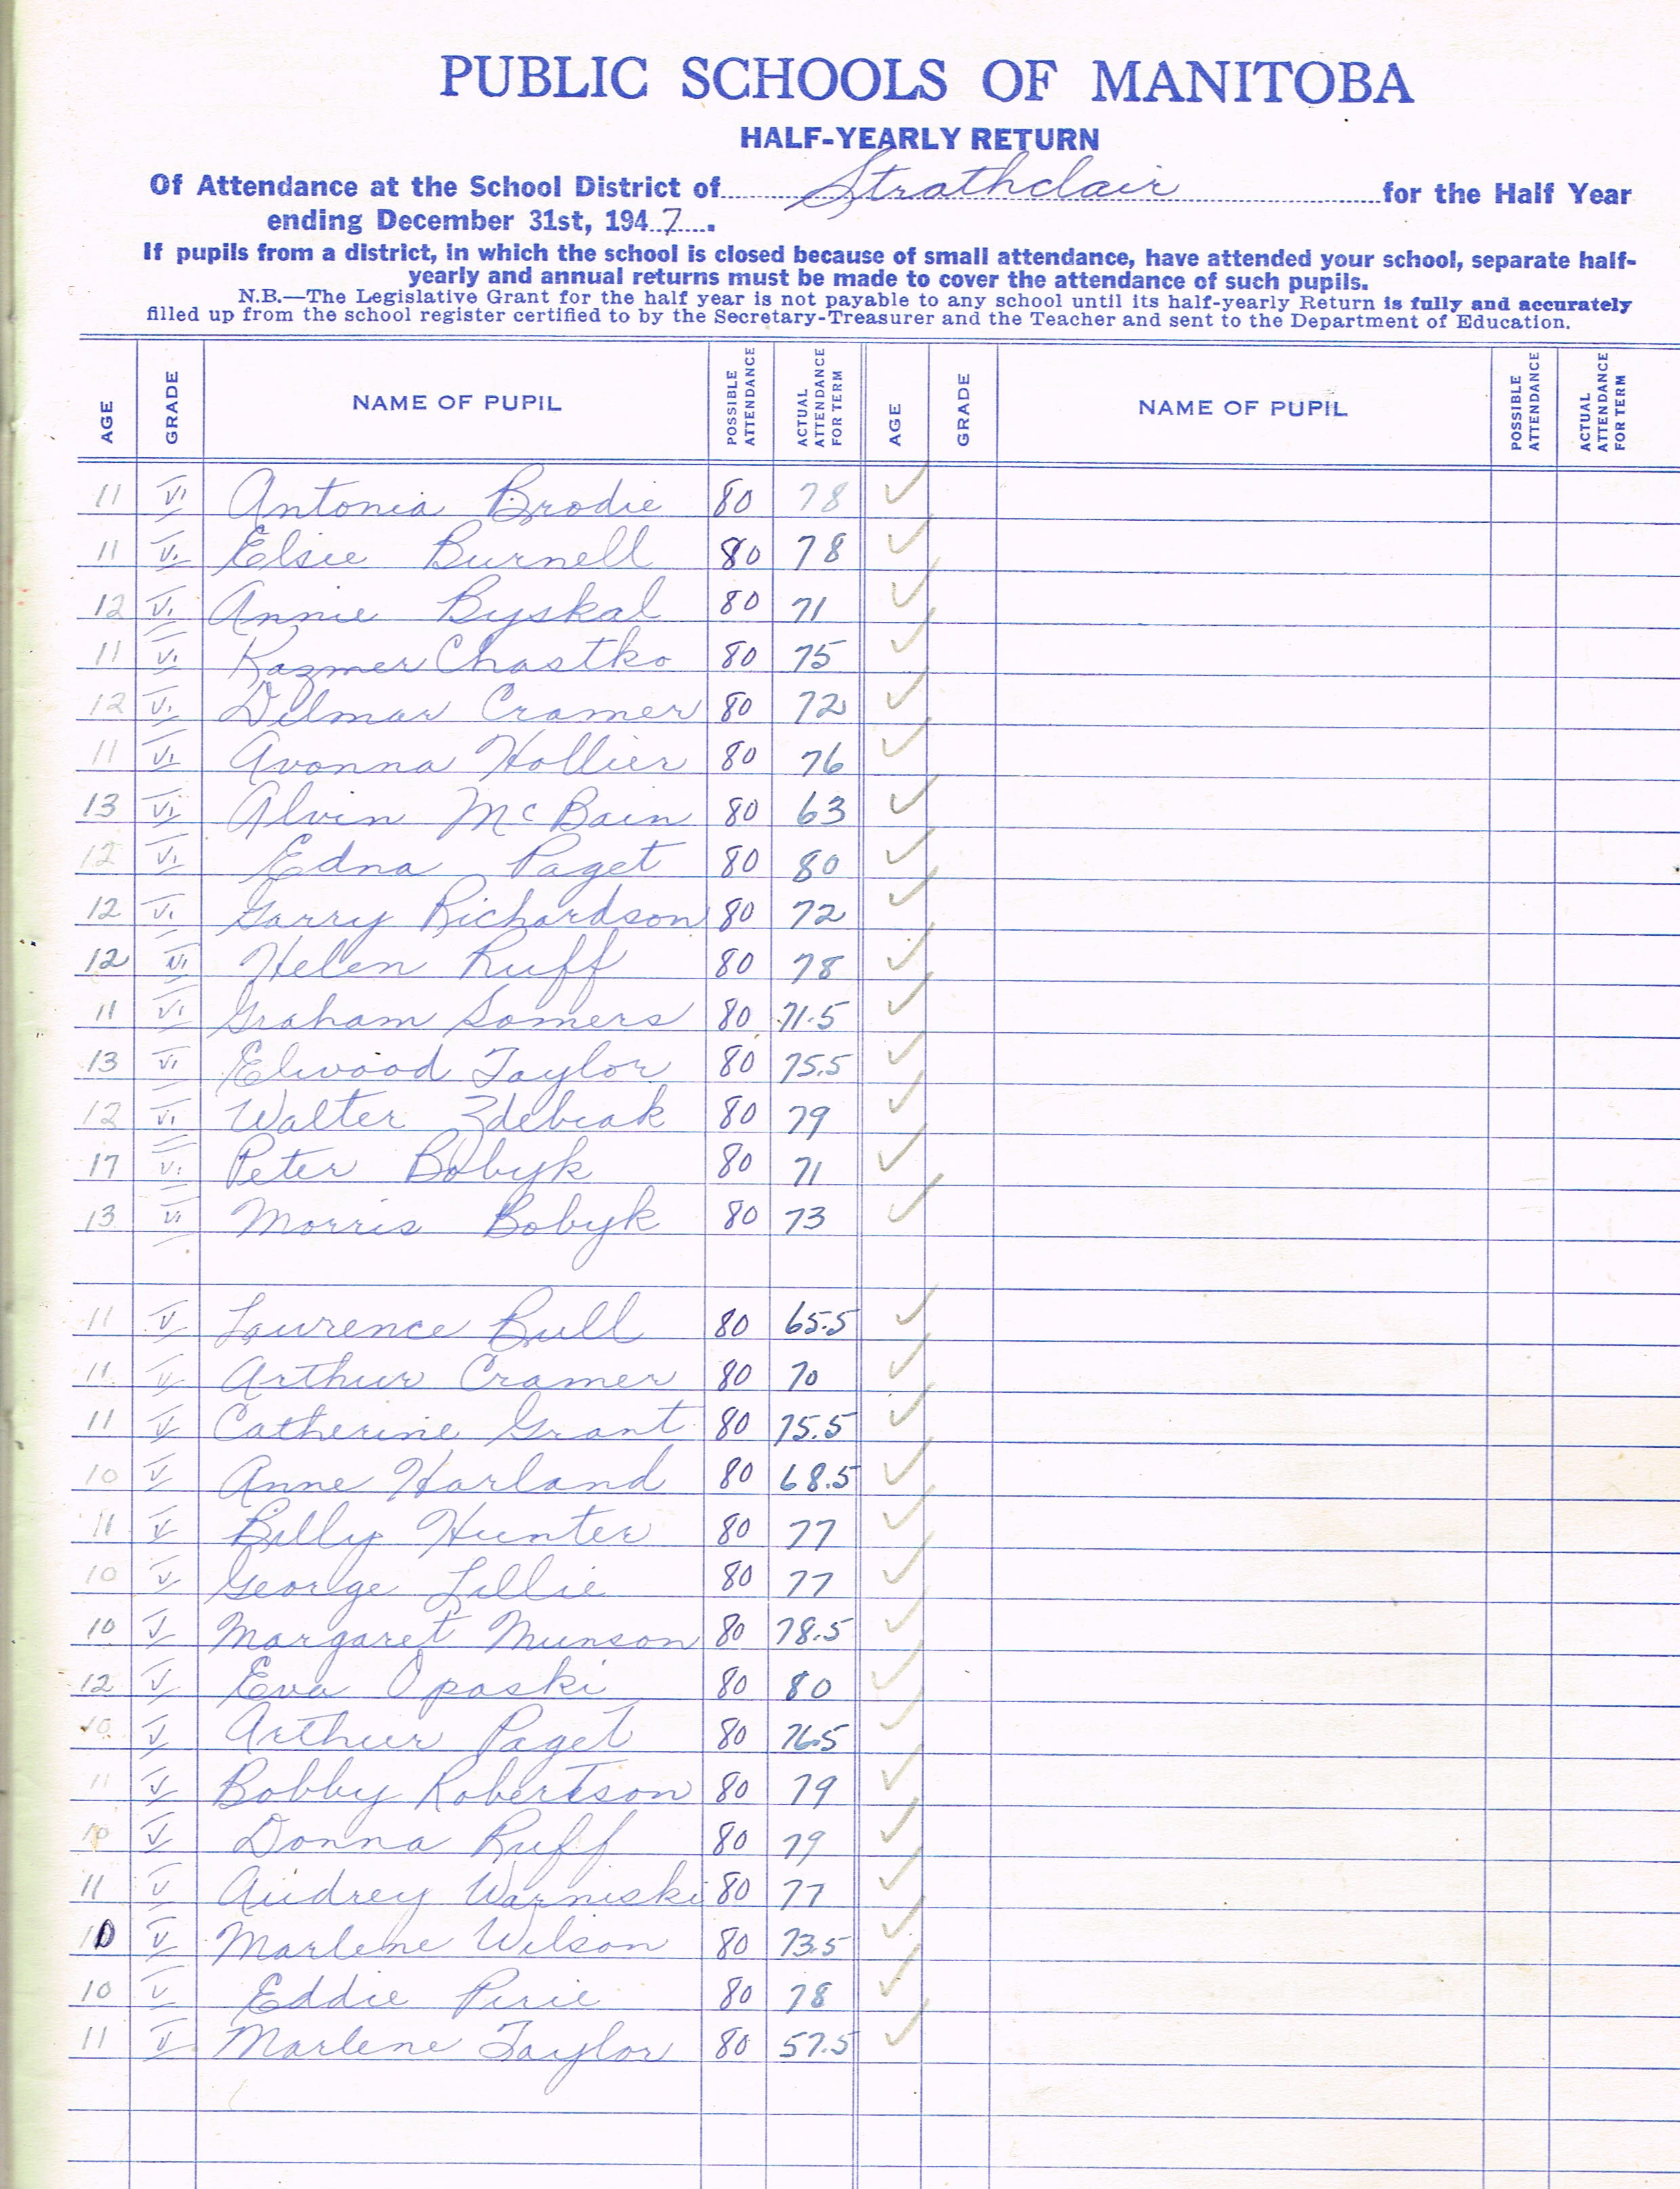 PUBLIC SCHOOLS OF MANITOBA
HALF-YEARLY RETURN
Of Attendance at the School District of Strathclair for the Half Year
ending December 31st, 1947.
If pupils from a district, in which the school is closed because of small attendance, have attended your school, separate half-
yearly and annual returns must be made to cover the attendance of such pupils.
N.B.—The Legislative Grant for the half year is not payable to any school until its half-yearly Return is fully and accurately
filled up from the school register certified to by the Secretary-Treasurer and the Teacher and sent to the Department of Education.
AGE GRADE NAME OF PUPIL POSSIBLE ATTENDANCE ACTUAL ATTENDANCE FOR TERM AGE GRADE NAME OF PUPIL POSSIBLE ATTENDANCE ACTUAL ATTENDANCE FOR TERM
11 VI Antonia Brodie 80 78 ✓
11 VI Elsie Burnell 80 78 ✓
12 VI Annie Byskal 80 71 ✓
11 VI Kazmer Chastko 80 75 ✓
12 VI Dilmar Cramer 80 72 ✓
11 VI Avonna Hollier 80 76 ✓
13 VI Alvin McBain 80 63 ✓
12 VI Edna Paget 80 80 ✓
12 VI Garry Richardson 80 72 ✓
12 VI Helen Ruff 80 78 ✓
11 VI Graham Somers 80 71.5 ✓
13 VI Elwood Taylor 80 75.5 ✓
12 VI Walter Zdebiak 80 79 ✓
17 VI Peter Bobyk 80 71 ✓
13 VI Morris Bobyk 80 73 ✓
11 V Laurence Bull 80 65.5 ✓
11 V Arthur Cramer 80 70 ✓
11 V Catherine Grant 80 75.5 ✓
10 V Anne Harland 80 68.5 ✓
11 V Billy Hunter 80 77 ✓
10 V George Lillie 80 77 ✓
10 V Margaret Munson 80 78.5 ✓
12 V Eva Opaski 80 80 ✓
10 V Arthur Paget 80 76.5 ✓
11 V Bobby Robertson 80 79 ✓
10 V Donna Ruff 80 79 ✓
11 V Audrey Warniski 80 77 ✓
10 V Marlene Wilson 80 73.5 ✓
10 V Eddie Pirie 80 78 ✓
11 V Marlene Taylor 80 57.5 ✓